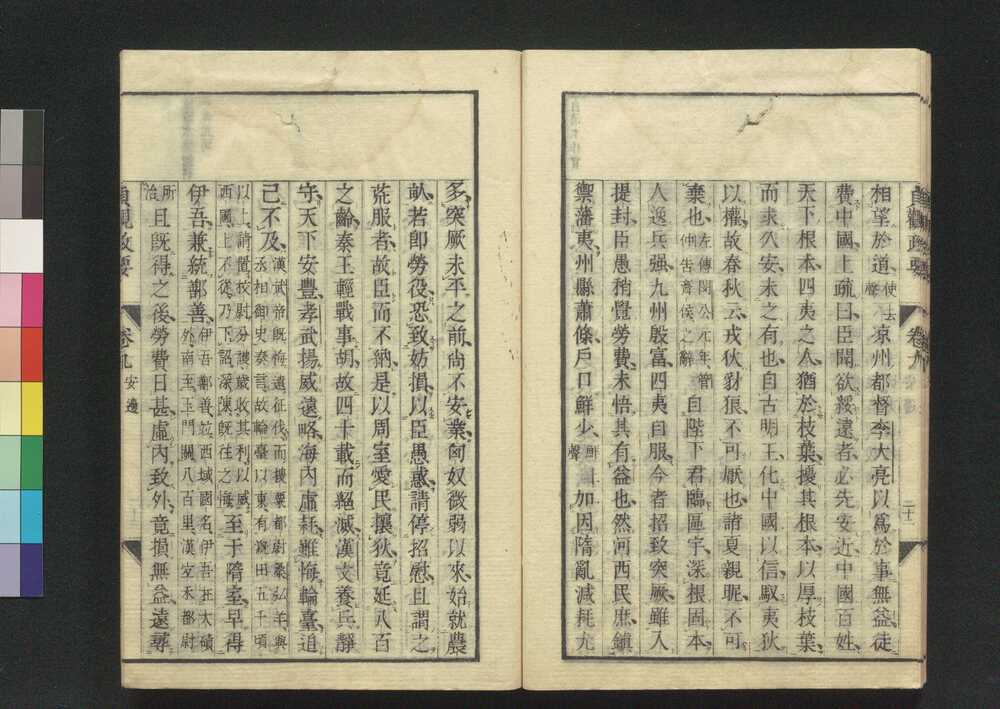 貞觀政要 卷九
相望於道使去聲凉州都督李大亮以爲於事無益徒
費中國上疏曰臣聞欲綏遠者必先安近中國百姓
天下根本四夷之人猶於枝葉擾其根本以厚枝葉
而求久安未之有也自古明王化中國以信馭夷狄
以權故春秋云戎狄豺狼不可厭也諸夏親昵不可
棄也左傳閔公元年管仲吿齊侯之辭自陛下君臨區宇深根固本
人逸兵强九州殷富四夷自服今者招致突厥雖入
提封臣愚稍覺勞費未悟其有益也然河西民庶鎭
禦藩夷州縣蕭條戶口鮮少鮮上聲加因隋亂減耗尤
多突厥未平之前尙不安業匈奴微弱以來始就農
畝若卽勞役恐致妨損以臣愚惑請停招慰且謂之
荒服者故臣而不納是以周室愛民攘狄竟延八百
之齡秦王輕戰事胡故四十載而絕滅漢文養兵靜
守天下安豐孝武揚威遠略海內虛耗雖悔輪臺追
已不及漢武帝旣悔遠征伐而搜粟都尉桑弘羊與丞相御史奏言故輪臺以東有漑田五千頃
以上請置校尉分護歲收其利以威西國上不從乃下詔深陳旣往之悔至于隋室早得
伊吾兼統鄯善伊吾鄯善竝西域國名伊吾在大磧外南至玉門關八百里漢宜禾都尉
所治且旣得之後勞費日甚虛內致外竟損無益遠尋
貞觀政要 卷九 安邊